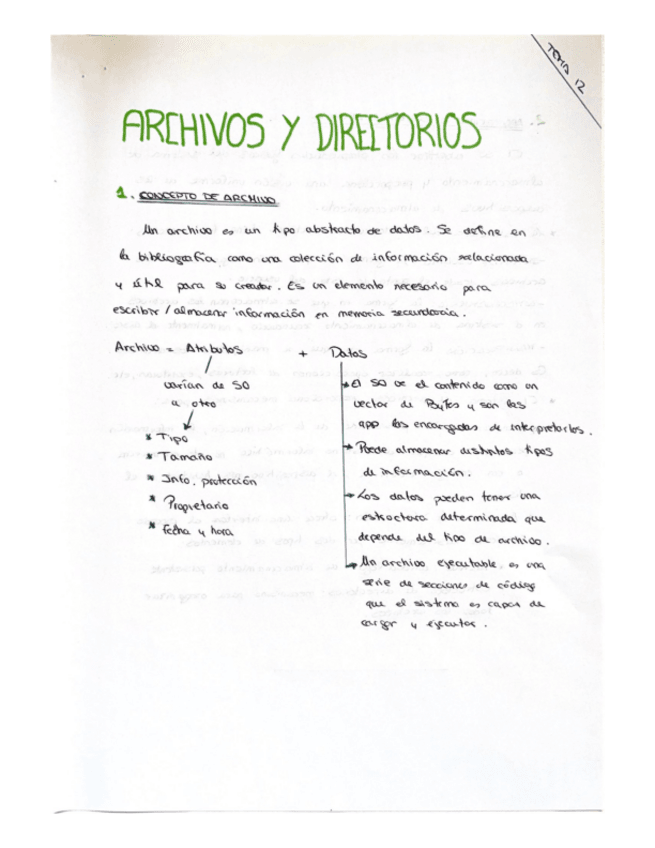 TEMA 12
ARCHIVOS Y DIRECTORIOS
1. CONCEPTO DE ARCHIVO
Un archivo es un tipo abstracto de datos. Se define en
la bibliografía como una colección de información relacionada
y útil para su creador. Es un elemento necesario para
escribir / almacenar información en memoria secundaria.
Archivo = Atributos + Datos
varían de SO
a otro
* Tipo
* Tamaño
* Info. protección
* Propietario
* Fecha y hora
El SO ve el contenido como un
vector de Bytes y son las
app las encargadas de interpretarlos.
Puede almacenar distintos tipos
de información.
Los datos pueden tener una
estructura determinada que
depende del tipo de archivo.
Un archivo ejecutable, es una
serie de secciones de código
que el sistema es capaz de
cargar y ejecutar.